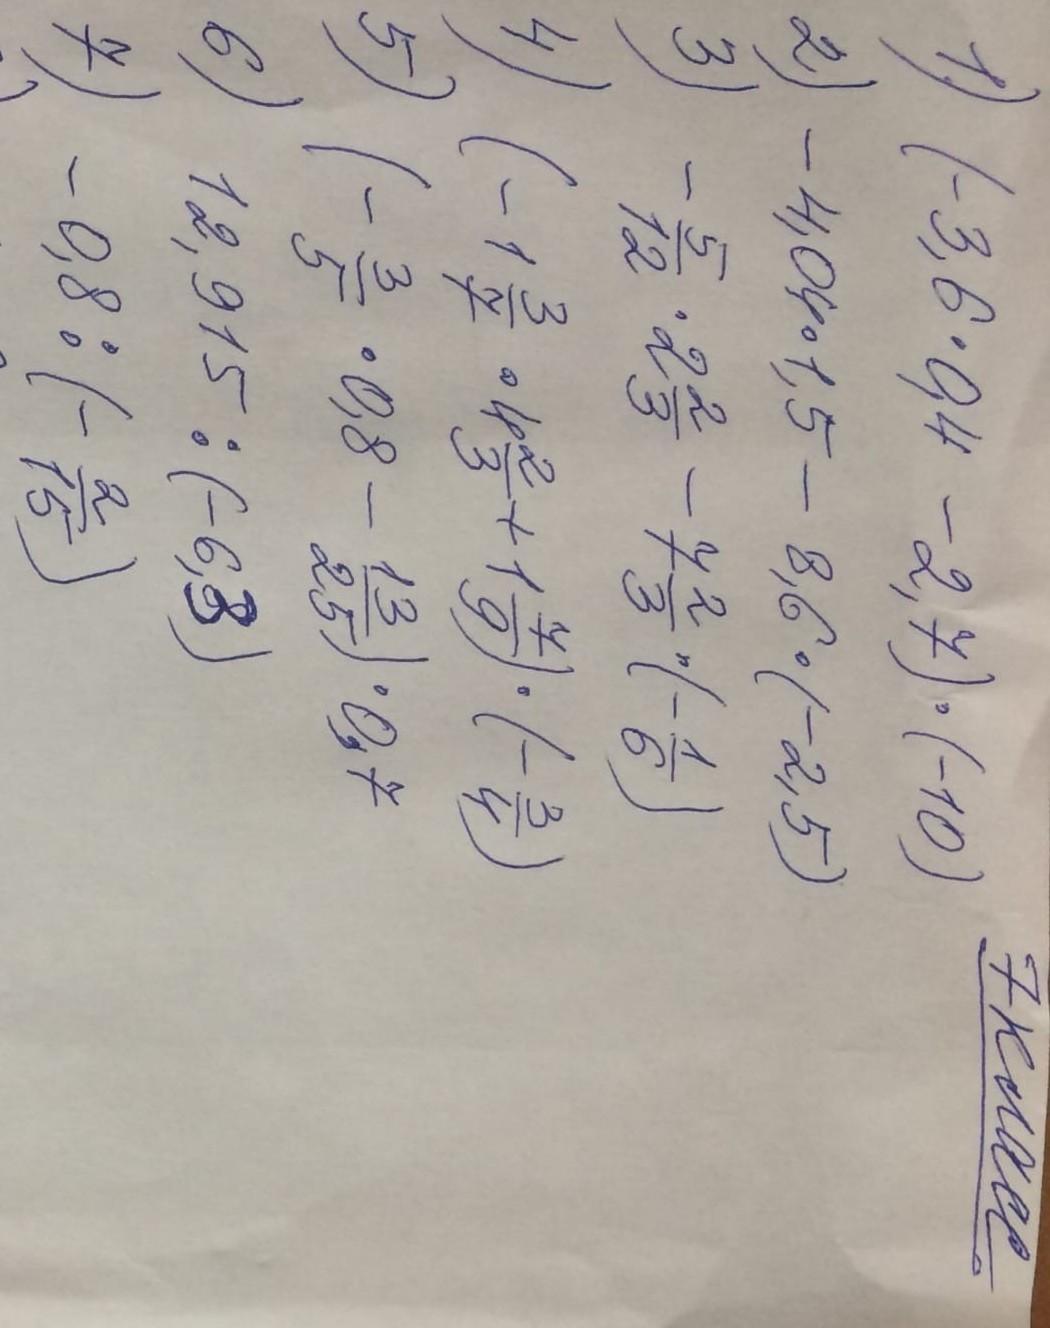 7 класс.
1) (-3,6·0,4 - 2,7)·(-10)
2) -4,04·1,5 - 8,6·(-2,5)
3) -5/12 · 2 2/3 - 7 2/3 · (-1/6)
4) (-1 3/7 · 4 2/3 + 1 7/9) · (-3/4)
5) (-3/5 · 0,8 - 13/25) · 0,7
6) 12,915 : (-6,3)
7) -0,8 : (-2/15)